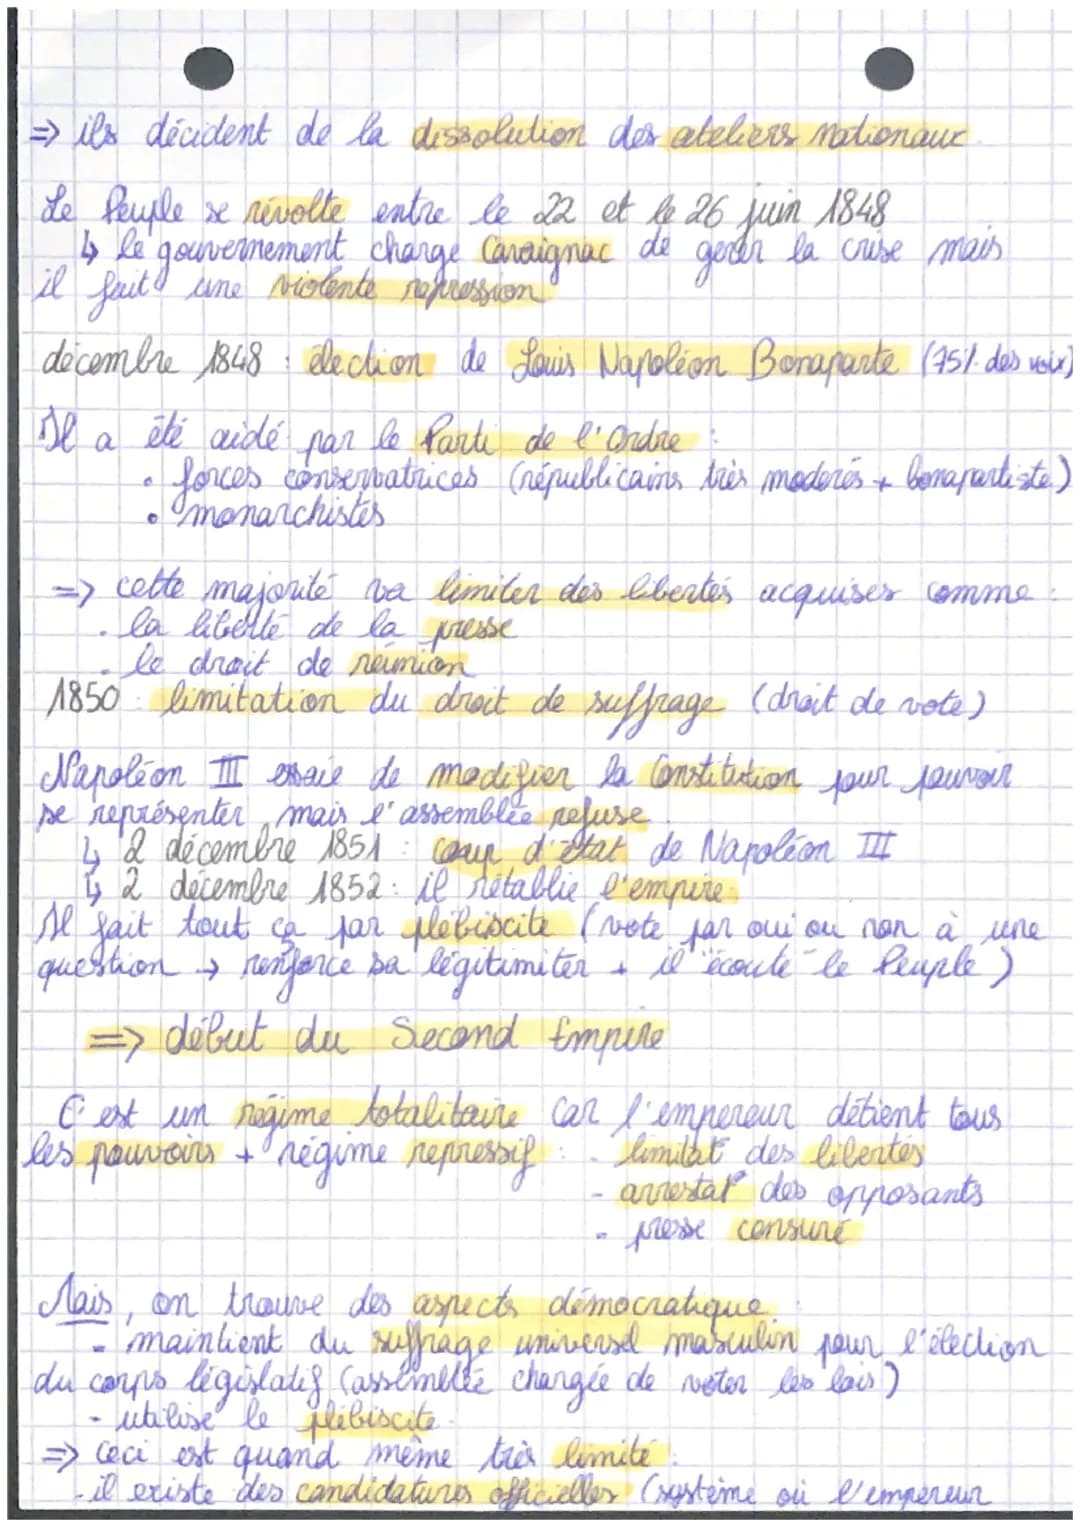 => ils décident de la dissolution des ateliers nationaux.
Le Peuple se révolte entre le 22 et le 26 juin 1848
↳ le gouvernement charge Cavaignac de gérer la crise mais
il fait une violente repression
décembre 1848 : élection de Louis Napoléon Bonaparte (75% des voix)
Il a été aidé par le Parti de l'Ordre :
• forces conservatrices (républicains très modérés + bonapartiste)
• monarchistes
=> cette majorité va limiter des libertés acquises comme :
. la liberté de la presse
. le droit de réunion
1850 : limitation du droit de suffrage (droit de vote)
Napoléon III essaie de modifier la Constitution pour pouvoir
se représenter, mais l'assemblée refuse.
↳ 2 décembre 1851 : coup d'état de Napoléon III
↳ 2 décembre 1852 : il rétablie l'empire.
Il fait tout ça par plébiscite (vote par oui ou non à une
question → renforce sa légitimiter + il "écoute" le Peuple)
=> début du Second Empire
C'est un régime totalitaire car l'empereur détient tous
les pouvoirs + régime repressif : - limitat° des libertés
- arrestat° des opposants
- presse censuré
Mais, on trouve des aspects démocratique :
- maintient du suffrage universel masculin pour l'élection
du corps législatif (assemblée chargée de voter les lois)
- utilise le plébiscite.
=> ceci est quand même très limité :
- il existe des candidatures officielles (système où l'empereur